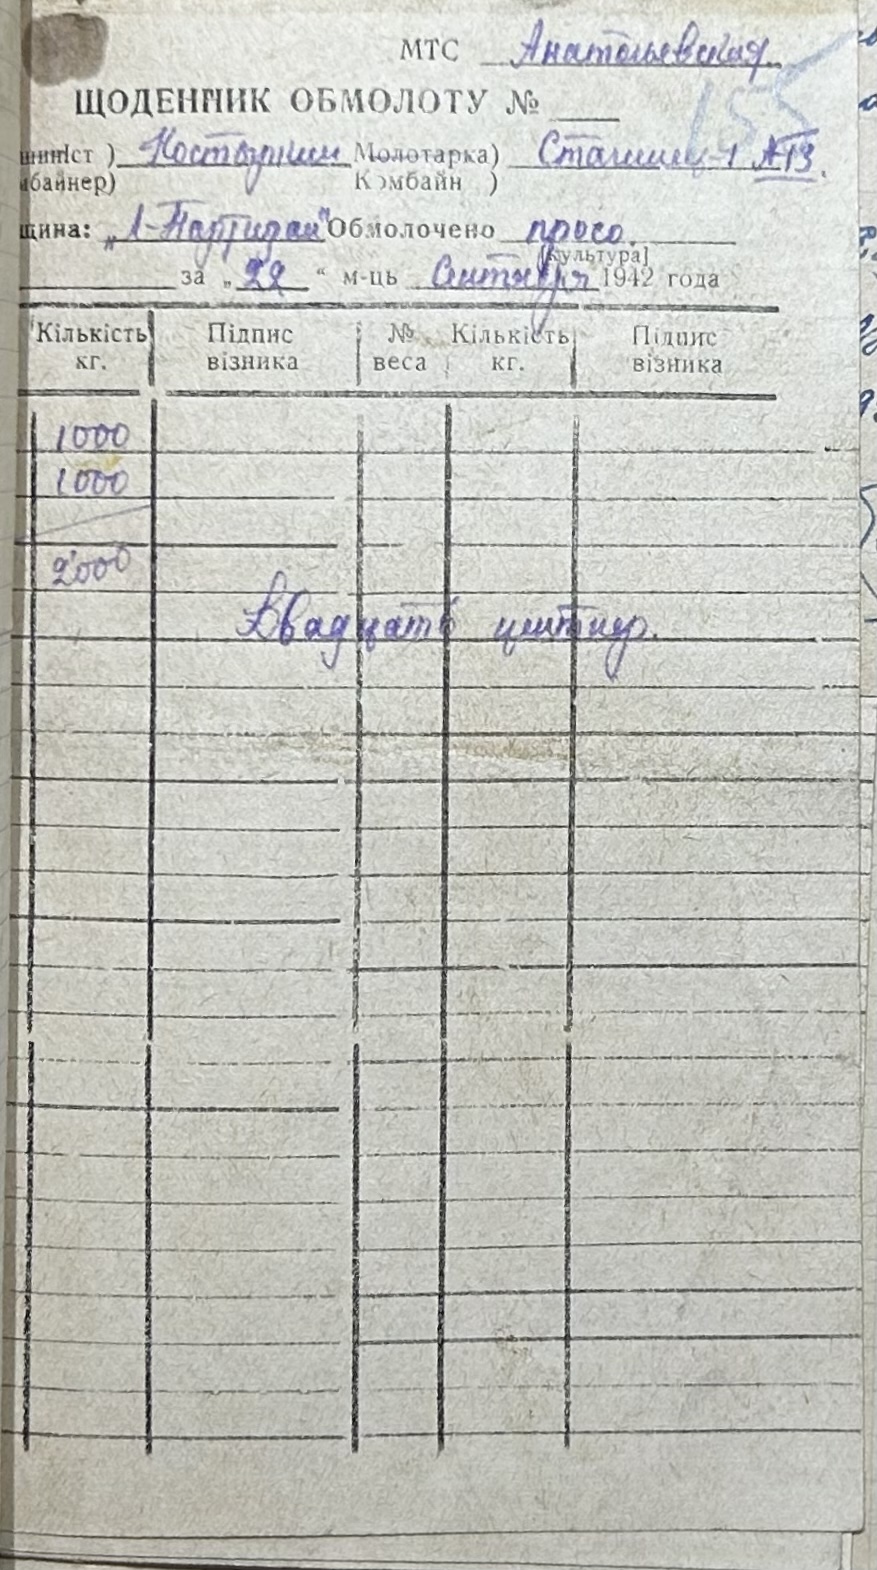 МТС Анатольевская
155
ЩОДЕННИК ОБМОЛОТУ №
шиніст ) Костыркин Молотарка) Сталинец-1 №13.
мбайнер) Комбайн )
щина: „1-Партизан" Обмолочено просо.
[культура]
за „22“ м-ць Сентября 1942 года
Кількість Підпис № Кількість Підпис
кг. візника веса кг. візника
1000
1000
2000
Двадцать центнер.